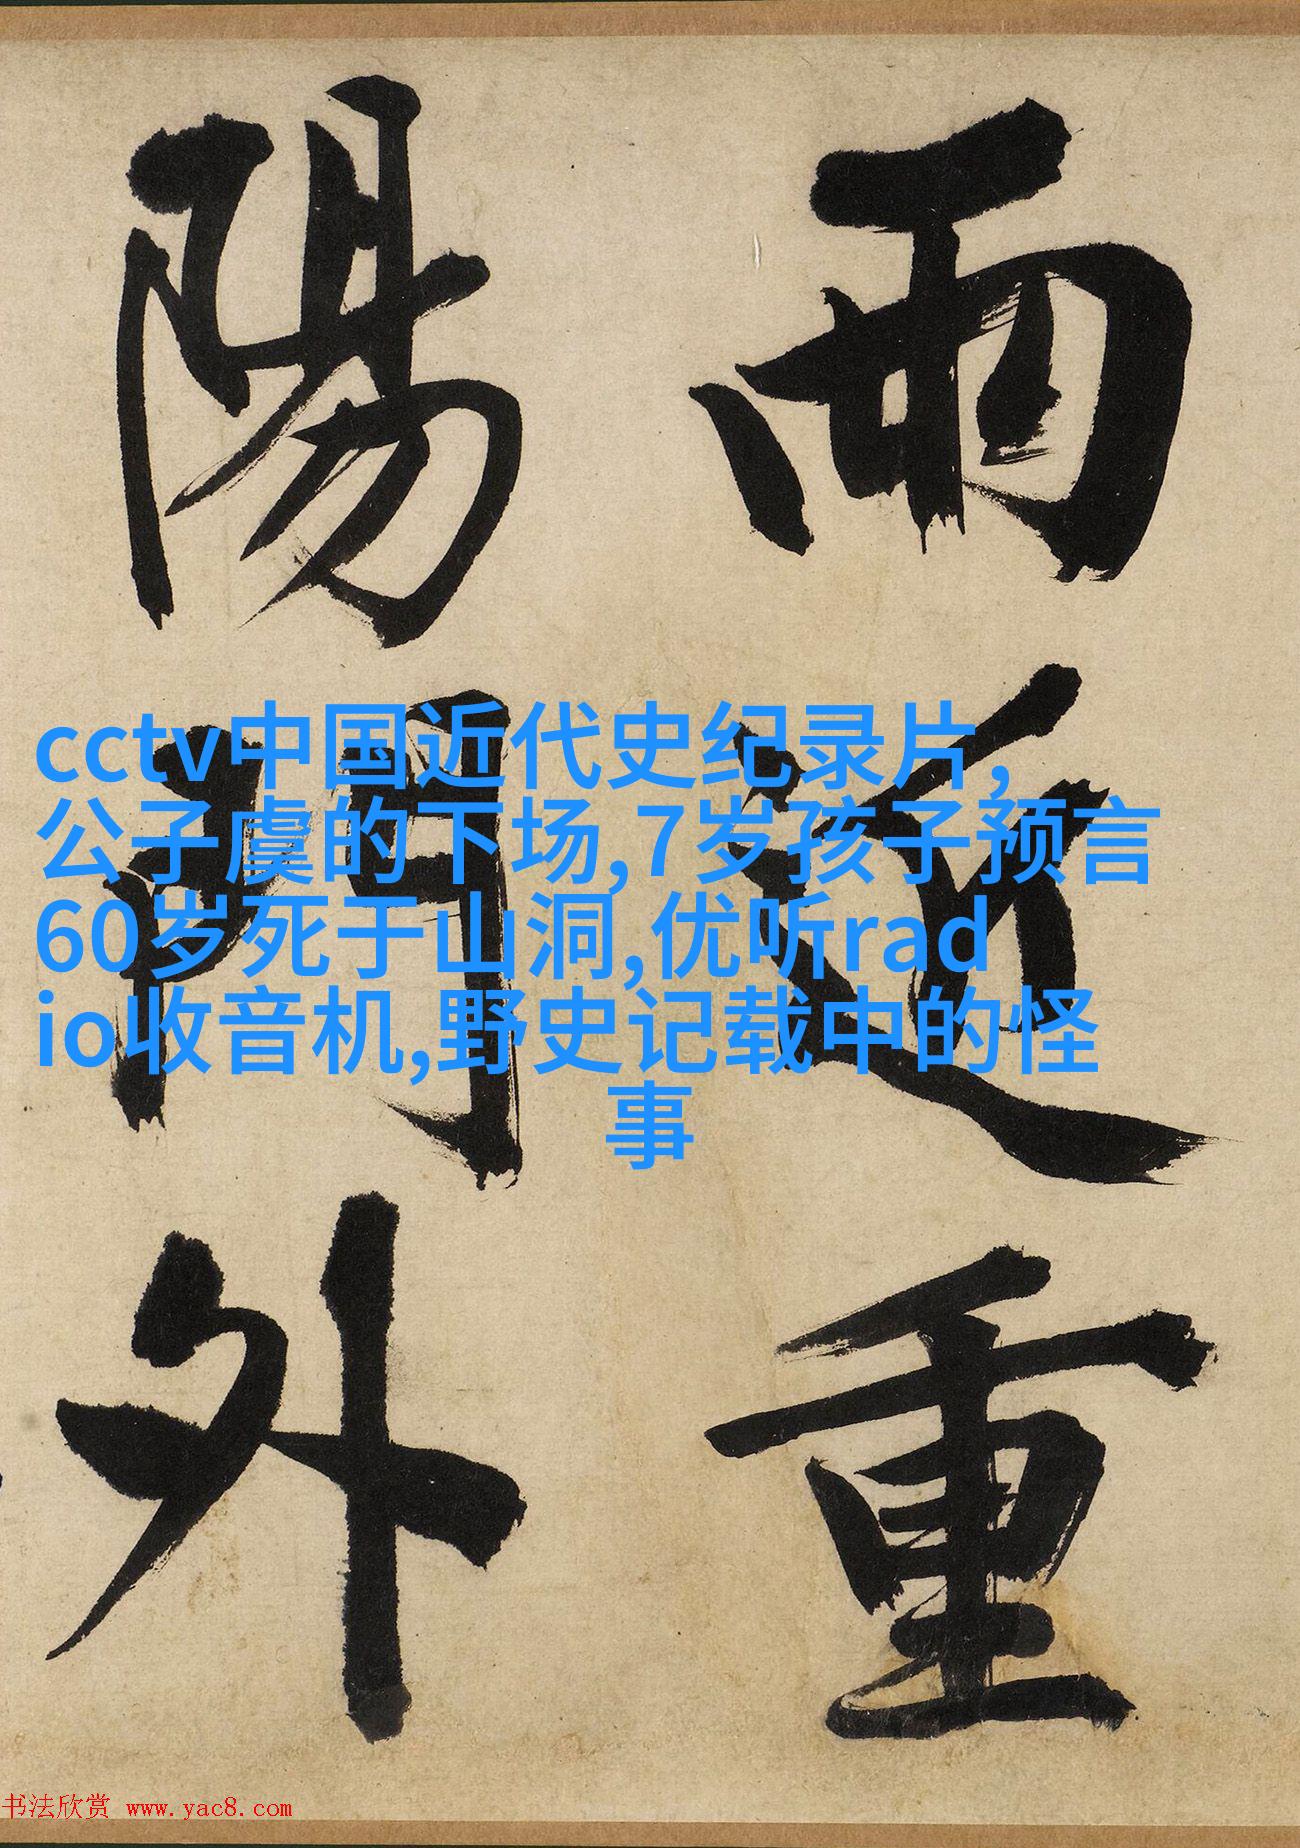 雨近重
陽門外
cctv中国近代史纪录片,
公子虞的下场,7岁孩子预言
60岁死于山洞,优听rad
io收音机,野史记载中的怪
事
书法欣赏 www.yac8.com